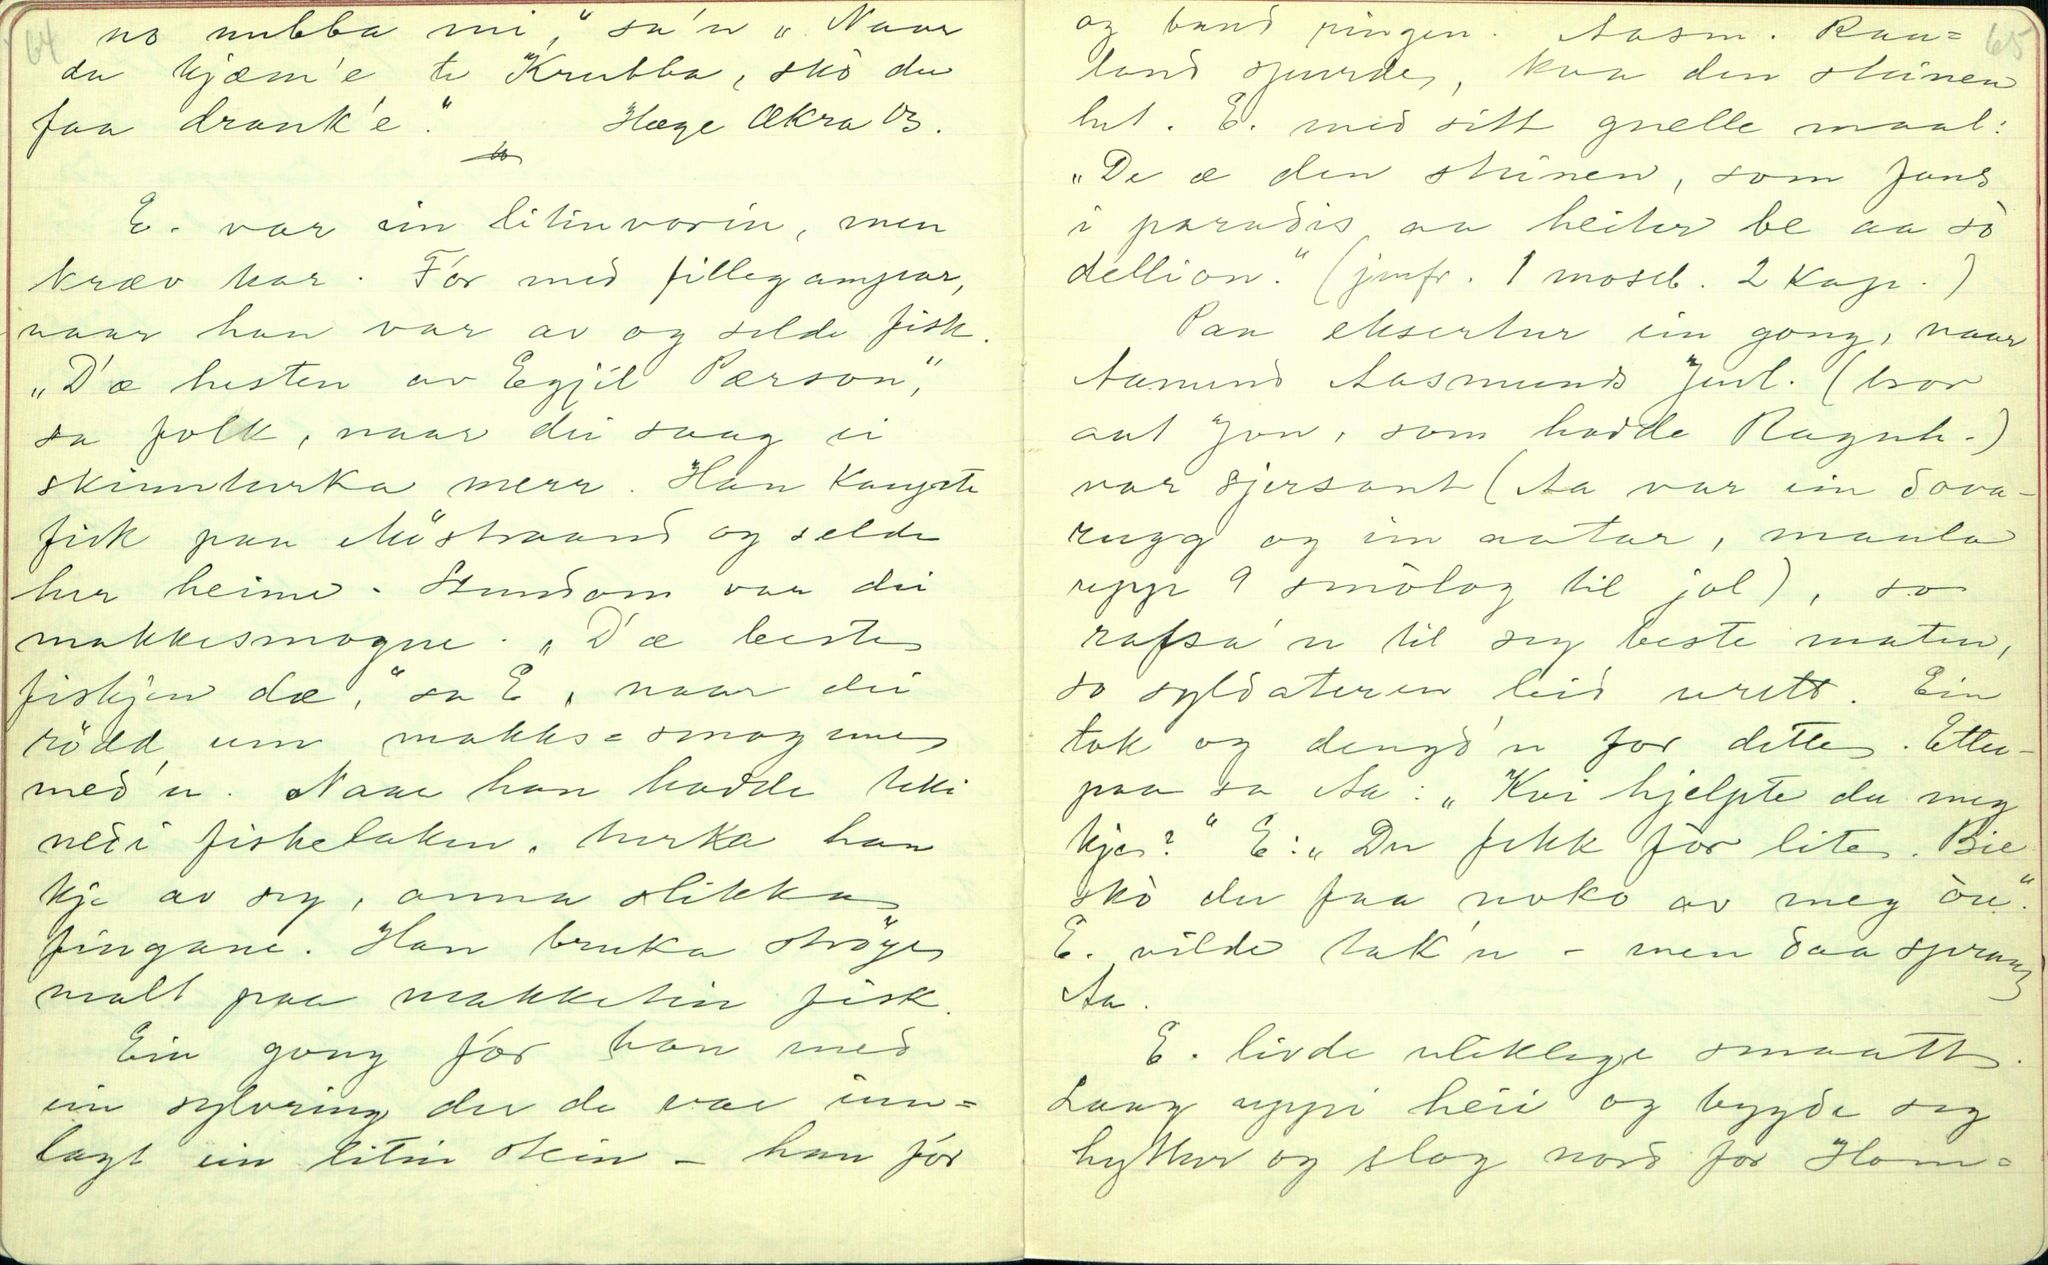 64
no nubba mi," sa'n „Naar
du kjæm'e te Krubba, skò du
faa drank'e." Hæge Økra 03.
E. var ein litinvorin, men
kræv kar. Fór med fillegampar,
naar han var av og selde fisk.
„D'æ hesten av Eegjil Pærson",
sa folk, naar dei saag ei
skinnturka merr. Han kaupte
fisk paa Möstraand og selde
her heime. Stundom var dei
makkesmogne. „D'æ beste
fiskjen dæ," sa E, naar dei
rödd um makke-smogne
med'n. Naar han hadde teki
nedi fiskelaken, turka han
kje av seg, anna slikka
fingane. Han bruka ströye
malt paa makketin fisk.
Ein gong fór han med
ein sylvring der de var inn=
lagt ein litin stein – han fór
65
og band ringen. Aasm. Rau=
land spurde, kva den steinen
het. E. med sitt gnelle maal:
„De æ den steinen, som fans
i paradis aa heiter be aa sò
dellion." (jmfr. 1 moseb. 2 kap.)
Paa eksertur ein gong, naar
Aamund Aasmunds Juvl. (bror
aat Jon, som hadde Ragnh.)
var sjersant (Aa var ein dova-
rugg og ein aatar, maula
upp 9 smölog til jol), so
rafsa'n til seg beste maten,
so syldateren leid urett. Ein
tok og dengd'n for dette. Etter-
paa sa Aa: „Kvi hjelpte du meg
kje?" E: „Du fekk fòr lite. Bie
skò du faa noko av meg òu".
E. vilde tak'n – men daa sprang
Aa.
E. livde uliklege smaatt.
Laag uppi heii og bygde seg
hyttur og slog nord for Hom=